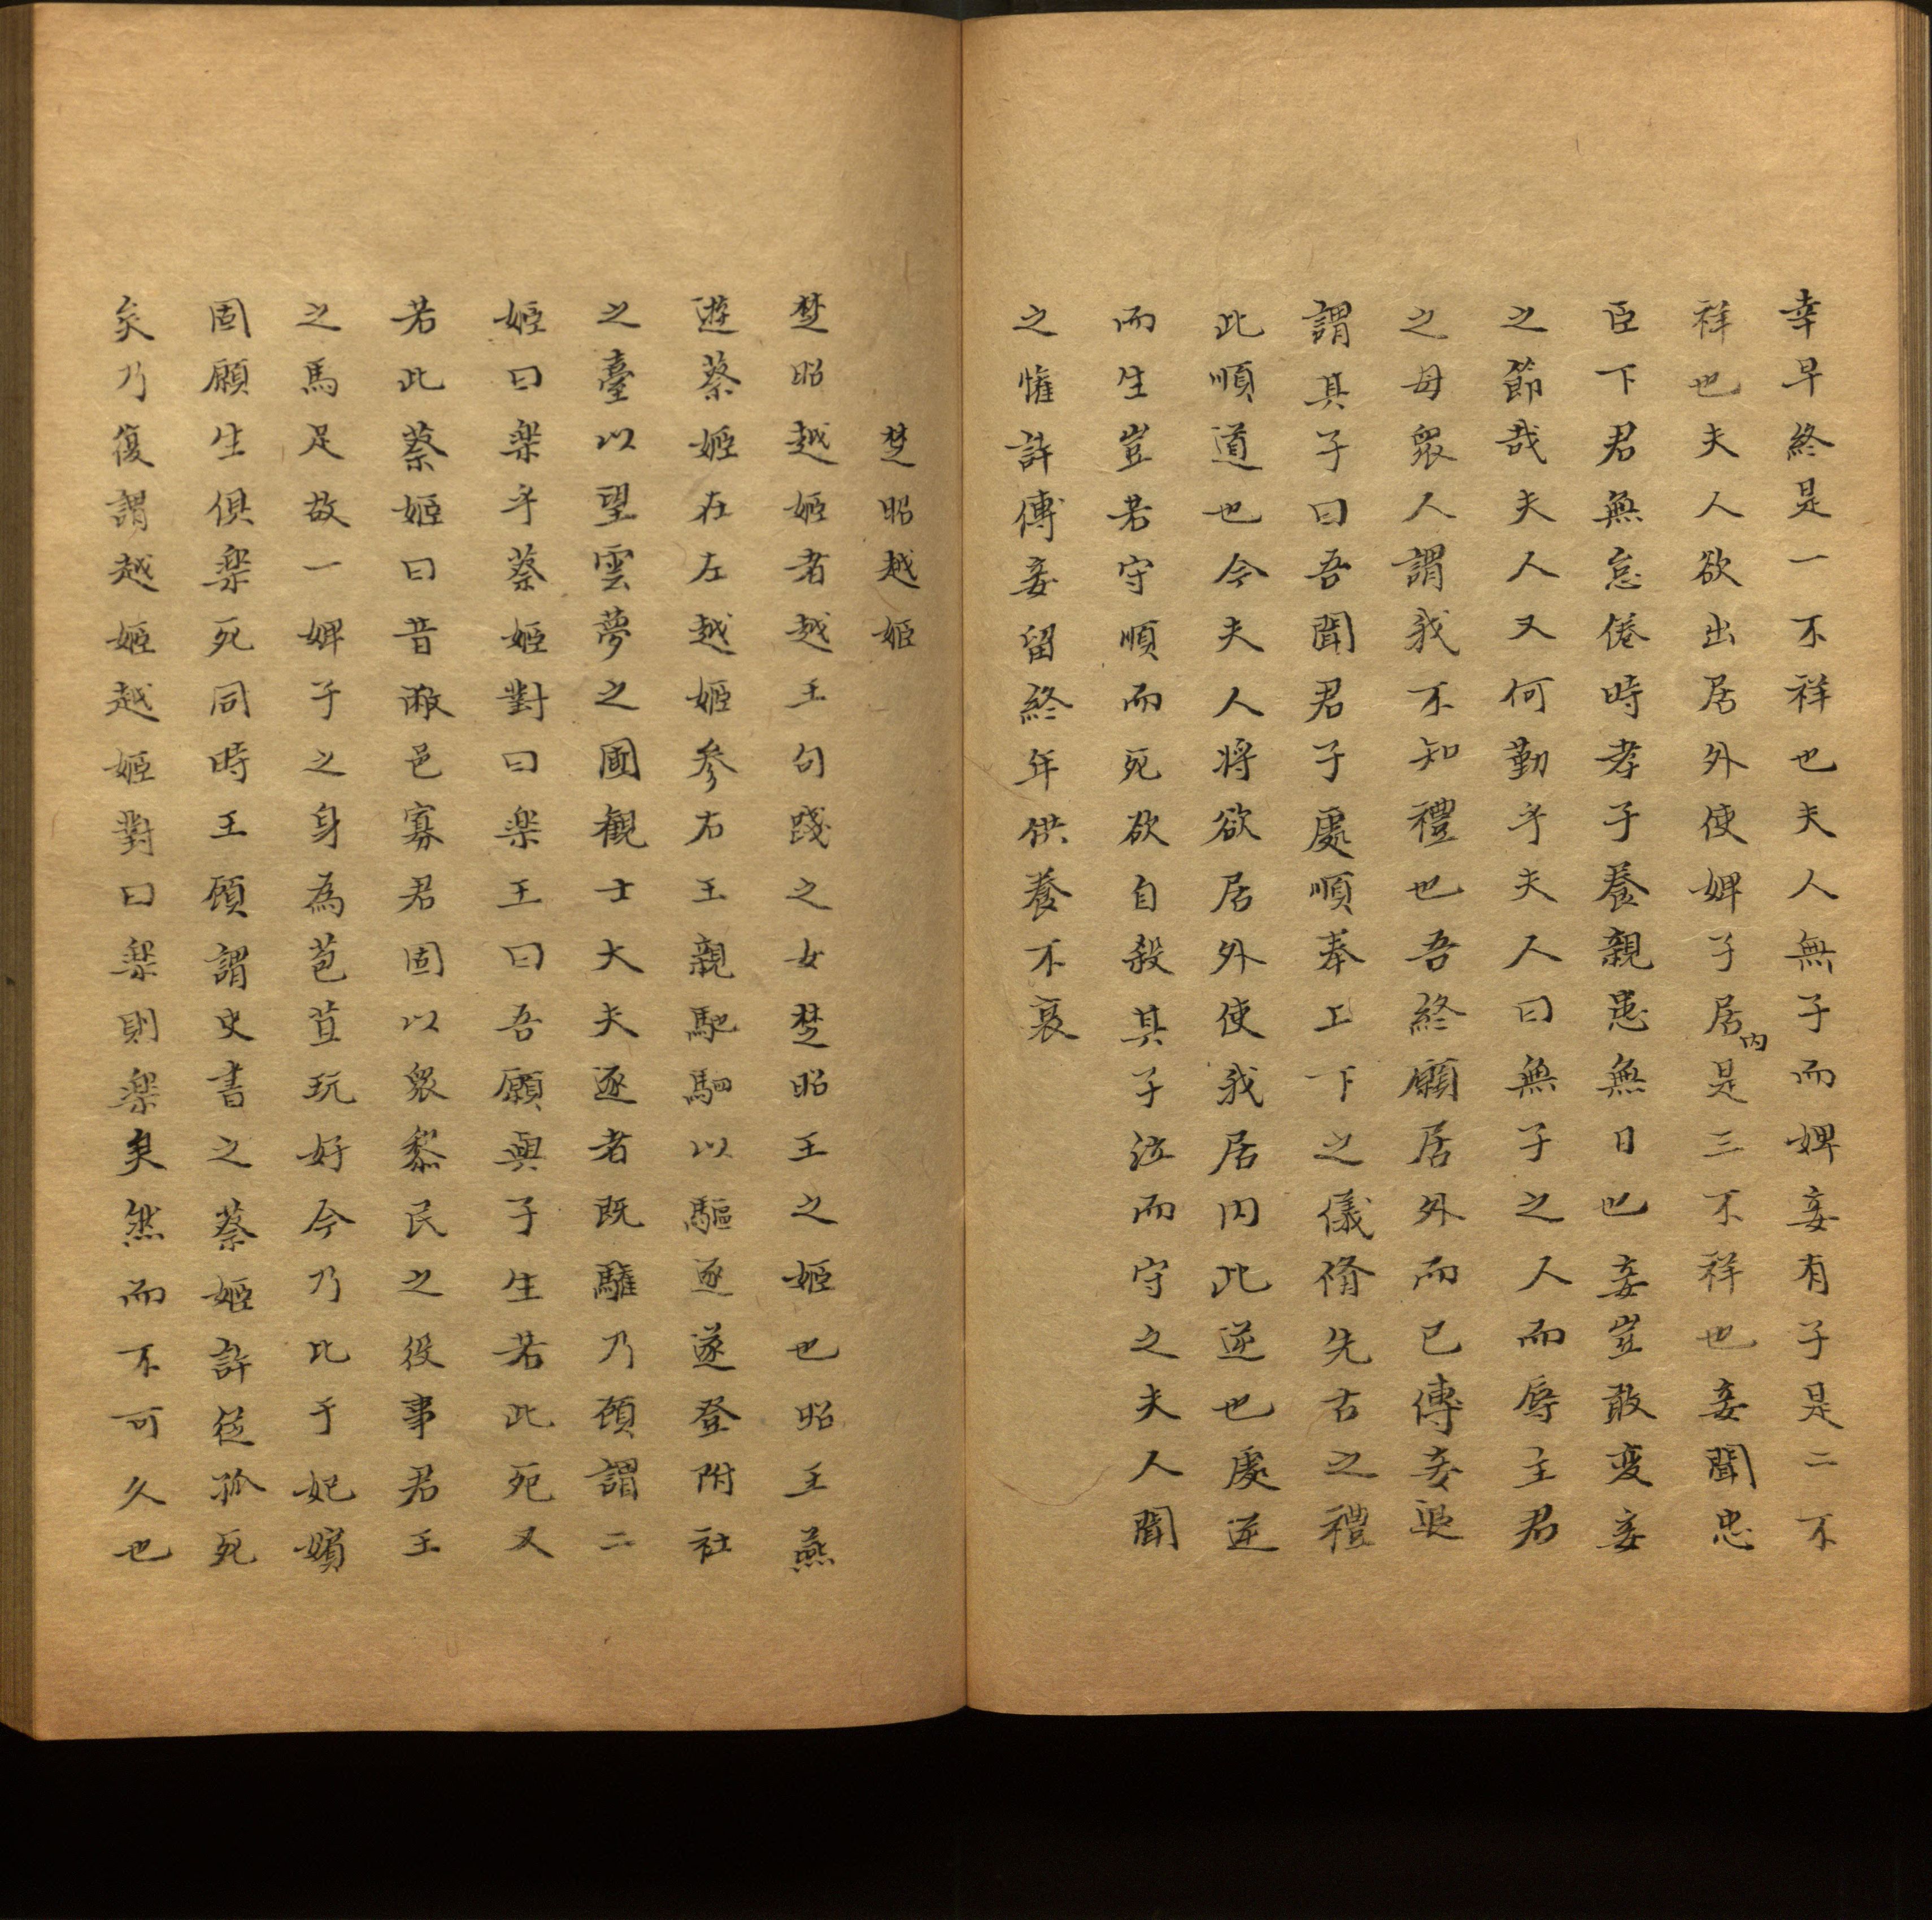 幸早終是一不祥也夫人無子而婢妾有子是二不
祥也夫人欲出居外使婢子居内是三不祥也妾聞忠
臣下君無怠倦時孝子養親患無日也妾豈敢変妾
之節哉夫人又何勤乎夫人曰無子之人而辱主君
之母眾人謂我不知禮也吾終願居外而已傅妾退
謂其子曰吾聞君子處順奉上下之儀脩先古之禮
此順道也今夫人將欲居外使我居内此逆也處逆
而生豈若守順而死欲自殺其子泣而守之夫人聞
之懼許傅妾留終年供養不衰
楚昭越姬
楚昭越姬者越王句踐之女楚昭王之姬也昭王燕
遊蔡姬在左越姬參右王親馳駟以驅逐遂登附社
之臺以望雲夢之囿観士大夫逐者既驩乃顧謂二
姬曰楽乎蔡姬對曰楽王曰吾願與子生若此死又
若此蔡姬曰昔敝邑寡君固以眾黎民之役事君王
之馬足故一婢子之身為苞苴玩好今乃比于妃嬪
固願生俱楽死同時王顧謂史書之蔡姬許從孤死
矣乃復謂越姬越姬對曰楽則楽矣然而不可久也